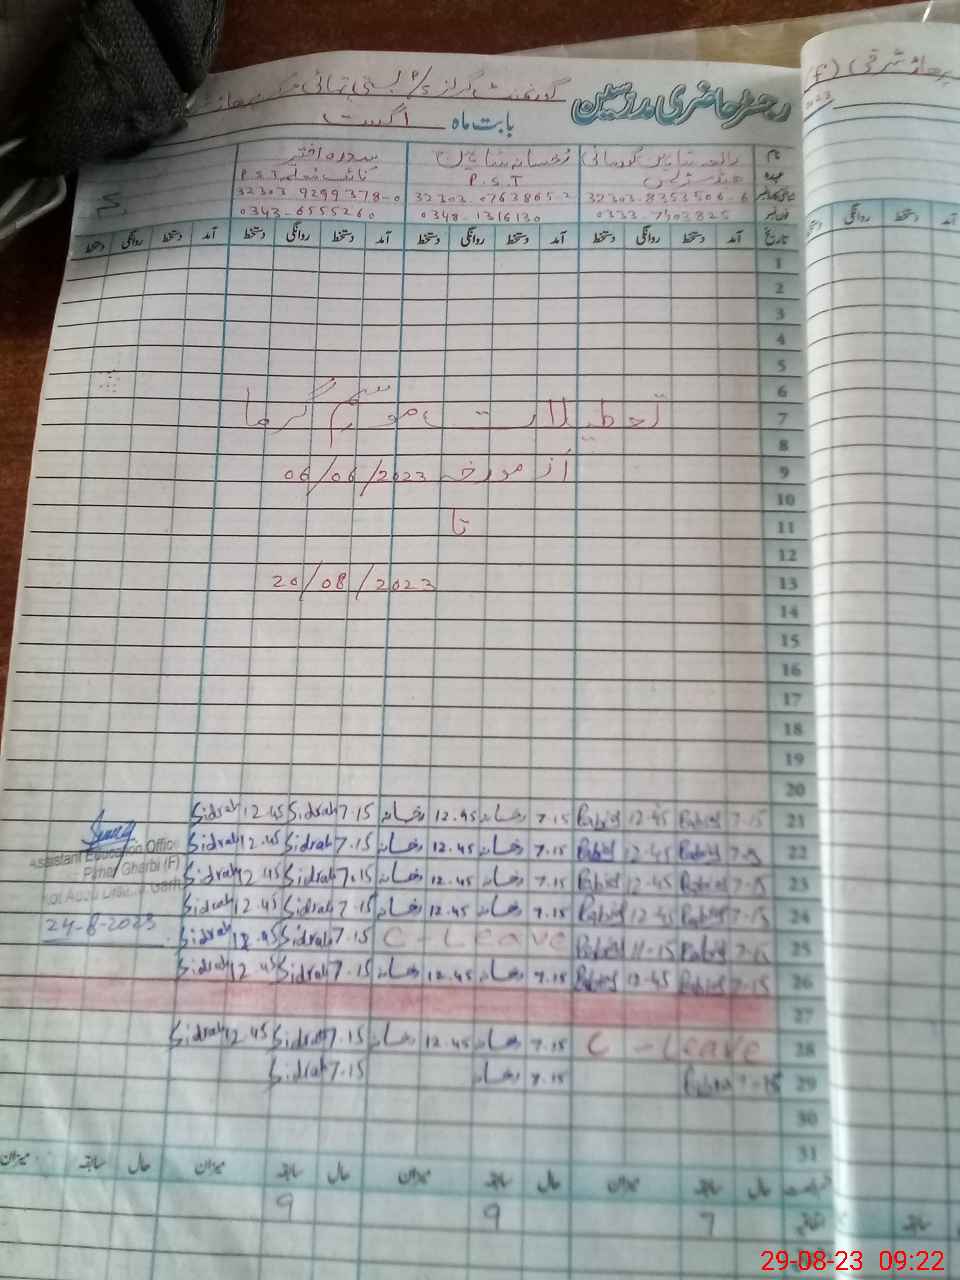 رجسٹر حاضری مدرسین
گورنمنٹ گرلز
بابت ماہ اگست
نام رابعہ شاہین رخسانہ شاہین سدرہ اختر
عہدہ P.S.T P.S.T
32303-8353506-6 32303-0763865-2 32303 9299378-0
0333-7403825 0348-1316130 0343-6555260
تاریخ آمد دستخط روانگی دستخط آمد دستخط روانگی دستخط آمد دستخط روانگی دستخط آمد دستخط روانگی دستخط
1
2
3
4
5
6
7 تعطیلات موسم گرما
8
9 از مورخہ 06/06/2023
10
11 تا
12
13 20/08/2023
14
15
16
17
18
19
20
21 7.15 Rabia 12-45 Rabia 7.15 رخسانہ 12.45 رخسانہ 7.15 Sidrah 12.45 Sidrah
22 7.15 Rabia 12-45 Rabia 7.15 رخسانہ 12.45 رخسانہ 7.15 Sidrah 12.45 Sidrah
23 7.15 Rabia 12-45 Rabia 7.15 رخسانہ 12.45 رخسانہ 7.15 Sidrah 12.45 Sidrah
24 7.15 Rabia 12-45 Rabia 7.15 رخسانہ 12.45 رخسانہ 7.15 Sidrah 12.45 Sidrah
25 7.15 Rabia 11-15 Rabia C - Leave 7.15 Sidrah 12.45 Sidrah
26 7.15 Rabia 12-45 Rabia 7.15 رخسانہ 12.45 رخسانہ 7.15 Sidrah 12.45 Sidrah
27
28 C - Leave 7.15 رخسانہ 12.45 رخسانہ 7.15 Sidrah 12.45 Sidrah
29 7-15 Rabia 7.15 رخسانہ 7.15 Sidrah
30
31
Assistant Education Officer
Gharbi (F)
24-8-2023
حال سابقہ میزان حال سابقہ میزان حال سابقہ میزان حال سابقہ میزان
اتفاقیہ 7 9 9
29-08-23 09:22